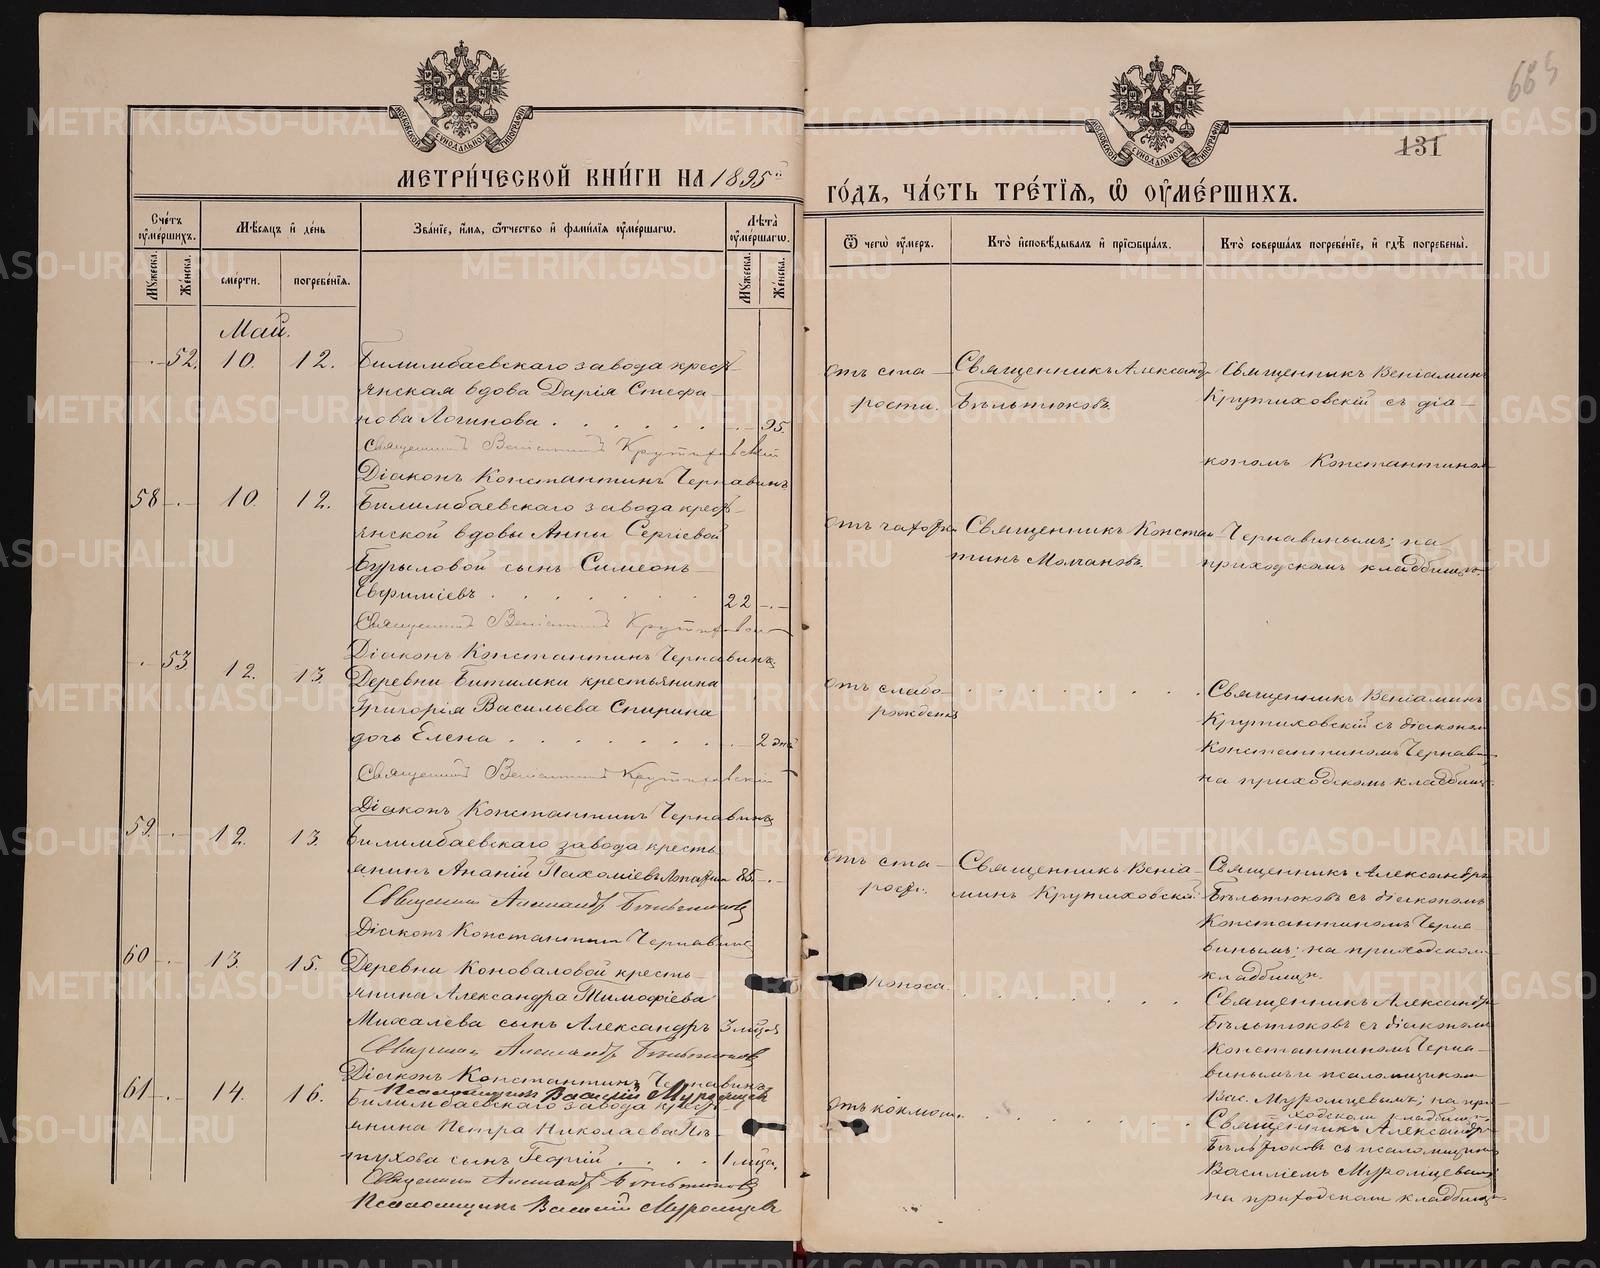 665
131
МЕТРИ́ЧЕСКОЙ КНИ́ГИ НА 1895й
ГО́ДЪ, ЧА́СТЬ ТРЕ́ТІѦ, Ѽ ОУ҆МЕ́РШИХЪ.
МОСКОВСКОЙ СѴНОДАЛЬНОЙ ТИПОГРАФІИ
МОСКОВСКОЙ СѴНОДАЛЬНОЙ ТИПОГРАФІИ
Сче́тъ оу҆ме́ршихъ.
Мꙋ́жеска.
Же́нска.
Мѣ́сяцъ и҆ де́нь
сме́рти.
погребе́нїѧ.
Зва́нїе, и҆́мѧ, ѻ҆́тчество и҆ фамѝлїѧ оу҆ме́ршагѡ.
Лѣ́та оу҆ме́ршагѡ.
Мꙋ́жеска.
Же́нска.
Ѿ чегѡ̀ оу҆́меръ.
Кто̀ и҆сповѣ́дывалъ и҆ прїѡбща́лъ.
Кто̀ соверша́лъ погребе́нїе, и҆ гдѣ̀ погребены̀.
Май.
52. 10. 12.
Билимбаевскаго завода кресть-
янская вдова Дарія Стефа-
нова Логинова . . . . . . 95.
Священникъ Веніаминъ Крутиховскій
Діаконъ Константинъ Чернавинъ
отъ ста-
рости.
Священникъ Александръ
Бѣльтюковъ.
Священникъ Веніаминъ
Крутиховскій съ діа-
кономъ Константиномъ
58 10. 12.
Билимбаевскаго завода кресть-
янской вдовы Анны Сергіевой
Бурыловой сынъ Симеонъ
Евфиміевъ . . . . . . 22
Священникъ Веніаминъ Крутиховскій
Діаконъ Константинъ Чернавинъ.
отъ чахотки
Священникъ Констан
тинъ Молчановъ.
Чернавинымъ; на
приходскомъ кладбищѣ.
53 12. 13.
Деревни Битимки крестьянина
Григорія Васильева Спирина
дочь Елена . . . . . . 2 дня
Священникъ Веніаминъ Крутиховскій
Діаконъ Константинъ Чернавинъ
отъ слабо-
рожденія
Священникъ Веніаминъ
Крутиховскій съ діаконом
Константиномъ Чернав-
на приходскомъ кладбищѣ.
59. 12. 13.
Билимбаевскаго завода кресть
янинъ Ананій Пахоміевъ 85.
Священникъ Александръ Бѣльтюковъ
Діаконъ Константинъ Чернавинъ
отъ ста-
рости.
Священникъ Веніа-
минъ Крутиховскій.
Священникъ Александръ
Бѣльтюковъ съ діакономъ
Константиномъ Черна-
винымъ; на приходском
кладбищѣ.
60 13. 15.
Деревни Коноваловой кресть-
янина Александра Тимофіева
Михалева сынъ Александръ 3 мѣца
Священникъ Александръ Бѣльтюковъ
Діаконъ Константинъ Чернавинъ
Псаломщикъ Василій Муромцевъ
поноса.
Священникъ Александръ
Бѣльтюковъ съ діакономъ
Константиномъ Черна-
винымъ и псаломщикомъ
Вас. Муромцевымъ; на при-
ходскомъ кладбищѣ.
61 14. 16.
Билимбаевскаго завода кресть-
янина Петра Николаева Пѣ-
тухова сынъ Георгій . . . . 1 мѣца.
Священникъ Александръ Бѣльтюковъ
Псаломщикъ Василій Муромцевъ
Отъ коклюша.
Священникъ Александръ
Бѣльтюковъ съ псаломщикомъ
Василіемъ Муромцевымъ
на приходскомъ кладбищѣ
METRIKI.GASO-URAL.RU